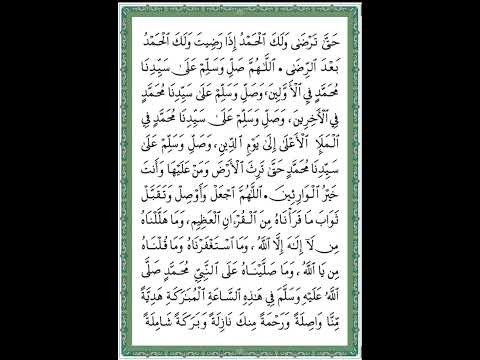 حَتَّى تَرْضَى وَلَكَ الْحَمْدُ إِذَا رَضِيتَ وَلَكَ الْحَمْدُ
بَعْدَ الرِّضَى . اللَّهُمَّ صَلِّ وَسَلِّمْ عَلَى سَيِّدِنَا
مُحَمَّدٍ فِي الْأَوَّلِينَ، وَصَلِّ وَسَلِّمْ عَلَى سَيِّدِنَا مُحَمَّدٍ
فِي الْآخِرِينَ، وَصَلِّ وَسَلِّمْ عَلَى سَيِّدِنَا مُحَمَّدٍ فِي
الْمَلَإِ الْأَعْلَى إِلَى يَوْمِ الدِّينِ، وَصَلِّ وَسَلِّمْ عَلَى
سَيِّدِنَا مُحَمَّدٍ حَتَّى تَرِثَ الْأَرْضَ وَمَنْ عَلَيْهَا وَأَنتَ
خَيْرُ الْوَارِثِينَ . اللَّهُمَّ اجْعَلْ وَأَوْصِلْ وَتَقَبَّلْ
ثَوَابَ مَا قَرَأْنَاهُ مِنَ الْقُرْءَانِ الْعَظِيمِ، وَمَا هَلَّلْنَاهُ
مِن لَا إِلَهَ إِلَّا اللَّهُ، وَمَا اسْتَغْفَرْنَاهُ وَمَا قُلْنَاهُ
مِن يَا اللَّهُ، وَمَا صَلَّيْنَاهُ عَلَى النَّبِيِّ مُحَمَّدٍ صَلَّى
اللَّهُ عَلَيْهِ وَسَلَّمَ فِي هَذِهِ السَّاعَةِ الْمُبَارَكَةِ هَدِيَّةً
مِّنَّا وَاصِلَةً وَرَحْمَةً مِنكَ نَازِلَةً وَبَرَكَةً شَامِلَةً